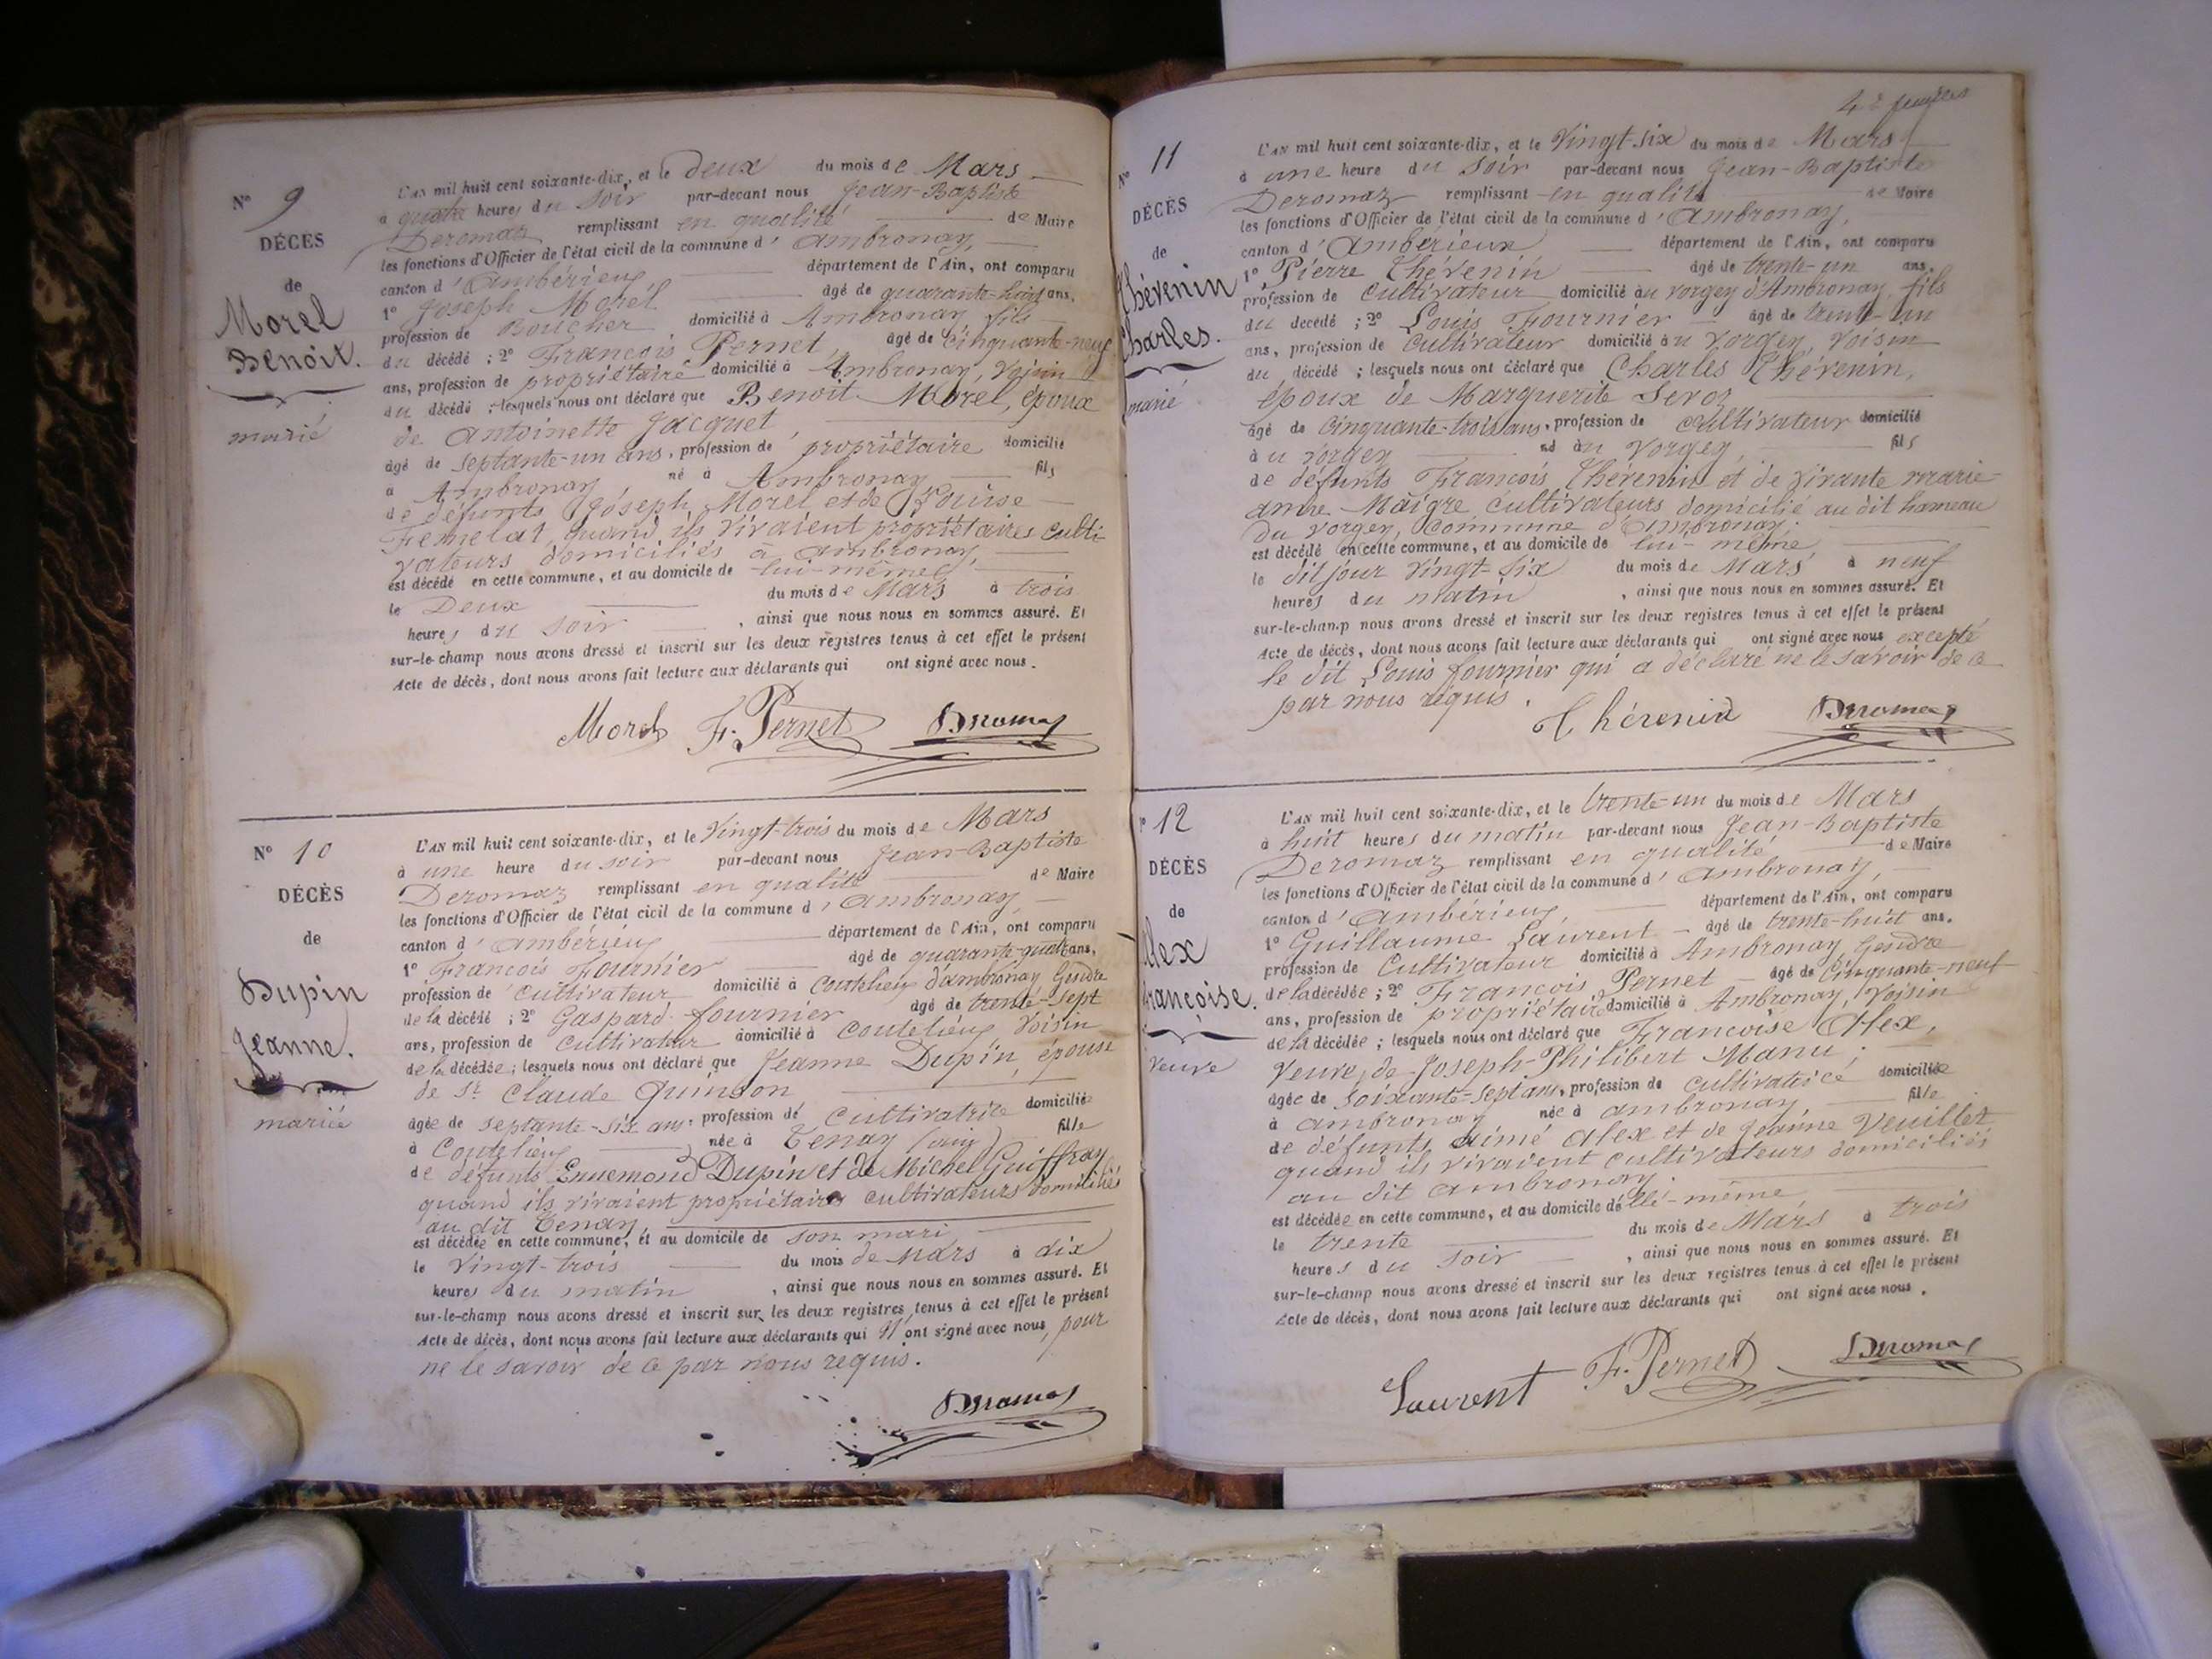 N° 9
DÉCES
de
Morel
Benoit.
marié
L'AN mil huit cent soixante-dix, et le Deux du mois de Mars
à quatre heures du soir par-devant nous Jean-Baptiste
Deromaz remplissant en qualité de Maire
les fonctions d'Officier de l'état civil de la commune d'Ambronay,
canton d'Ambérieux département de l'Ain, ont comparu
1° Joseph Morel âgé de quarante-huit ans,
profession de Boucher domicilié à Ambronay fils
du décédé ; 2° François Pernet, âgé de Cinquante-neuf
ans, profession de propriétaire domicilié à Ambronay, Voisin
du décédé ; lesquels nous ont déclaré que Benoit Morel, époux
de Antoinette Jacquet
âgé de septante-un ans, profession de propriétaire domicilié
à Ambronay né à Ambronay fils
de défunts Joseph Morel et de Louise
Femelat, quand ils vivaient propriétaires culti
vateurs domiciliés à Ambronay,
est décédé en cette commune, et au domicile de lui-même
le Deux du mois de Mars à trois
heures du soir , ainsi que nous nous en sommes assuré. Et
sur-le-champ nous avons dressé et inscrit sur les deux registres tenus à cet effet le présent
Acte de décès, dont nous avons fait lecture aux déclarants qui ont signé avec nous.
Morel F. Pernet Deromaz
N° 10
DÉCÈS
de
Dupin
Jeanne.
mariée
L'AN mil huit cent soixante-dix, et le Vingt-trois du mois de Mars
à une heure du soir par-devant nous Jean-Baptiste
Deromaz remplissant en qualité de Maire
les fonctions d'Officier de l'état civil de la commune d'Ambronay,
canton d'Ambérieux département de l'Ain, ont comparu
1° François Fournier âgé de quarante-quatre ans,
profession de cultivateur domicilié à Coutelieu d'ambronay Gendre
de la décédé ; 2° Gaspard fournier âgé de trente-sept
ans, profession de Cultivateur domicilié à Coutelieu, Voisin
de la décédée ; lesquels nous ont déclaré que Jeanne Dupin, épouse
de Sr Claude Quinson
âgée de septante-six ans, profession de cultivatrice domiciliée
à Coutelieu née à Tenay (ain) fille
de défunts Ennemond Dupin et de Michel Guiffray
quand ils vivaient propriétaires cultivateurs domiciliés
au dit Tenay,
est décédée en cette commune, et au domicile de son mari
le Vingt-trois du mois de Mars à dix
heures du matin , ainsi que nous nous en sommes assuré. Et
sur-le-champ nous avons dressé et inscrit sur les deux registres tenus à cet effet le présent
Acte de décès, dont nous avons fait lecture aux déclarants qui N'ont signé avec nous, pour
ne le savoir de ce par nous requis.
Deromaz
4e feuillet
N° 11
DÉCÈS
de
Thévenin
Charles.
marié
L'AN mil huit cent soixante-dix, et le Vingt-six du mois de Mars
à une heure du soir par-devant nous Jean-Baptiste
Deromaz remplissant en qualité de Maire
les fonctions d'Officier de l'état civil de la commune d'Ambronay,
canton d'Ambérieux département de l'Ain, ont comparu
1° Pierre Thévenin âgé de trente-un ans,
profession de Cultivateur domicilié au Vorgey d'Ambronay fils
du décédé ; 2° Louis Fournier âgé de trente-un
ans, profession de Cultivateur domicilié au Vorgey, Voisin
du décédé ; lesquels nous ont déclaré que Charles Thévenin,
époux de Marguerite Seroz
âgé de Cinquante-trois ans, profession de cultivateur domicilié
à u vorgey né au Vorgey, fils
de défunts François Thévenin et de vivante marie-
anne Maigre cultivateurs domicilié au dit hameau
du vorgey, commune d'Ambronay.
est décédé en cette commune, et au domicile de lui-même
le dit jour vingt-six du mois de Mars à neuf
heures du matin , ainsi que nous nous en sommes assuré. Et
sur-le-champ nous avons dressé et inscrit sur les deux registres tenus à cet effet le présent
Acte de décès, dont nous avons fait lecture aux déclarants qui ont signé avec nous excepté
le dit Louis fournier qui a déclaré ne le savoir de ce
par nous requis.
Thévenin Deromaz
N° 12
DÉCÈS
de
Alex
Françoise.
Veuve
L'AN mil huit cent soixante-dix, et le trente-un du mois de Mars
à huit heures du matin par-devant nous Jean-Baptiste
Deromaz remplissant en qualité de Maire
les fonctions d'Officier de l'état civil de la commune d'Ambronay,
canton d'Ambérieux, département de l'Ain, ont comparu
1° Guillaume Laurent âgé de trente-huit ans,
profession de Cultivateur domicilié à Ambronay, Gendre
de la décédée ; 2° François Pernet âgé de Cinquante-neuf
ans, profession de propriétaire domicilié à Ambronay, Voisin
de la décédée ; lesquels nous ont déclaré que Françoise Alex,
Veuve de Joseph-Philibert Manu ;
âgée de soixante-sept ans, profession de cultivatrice domiciliée
à ambronay née à ambronay, fille
de défunts Aimé Alex et de Jeanne Veuillet
quand ils vivaient cultivateurs domiciliés
au dit ambronay.
est décédée en cette commune, et au domicile d'elle-même
le trente du mois de Mars à trois
heures du soir , ainsi que nous nous en sommes assuré. Et
sur-le-champ nous avons dressé et inscrit sur les deux registres tenus à cet effet le présent
Acte de décès, dont nous avons fait lecture aux déclarants qui ont signé avec nous.
Laurent F. Pernet Deromaz